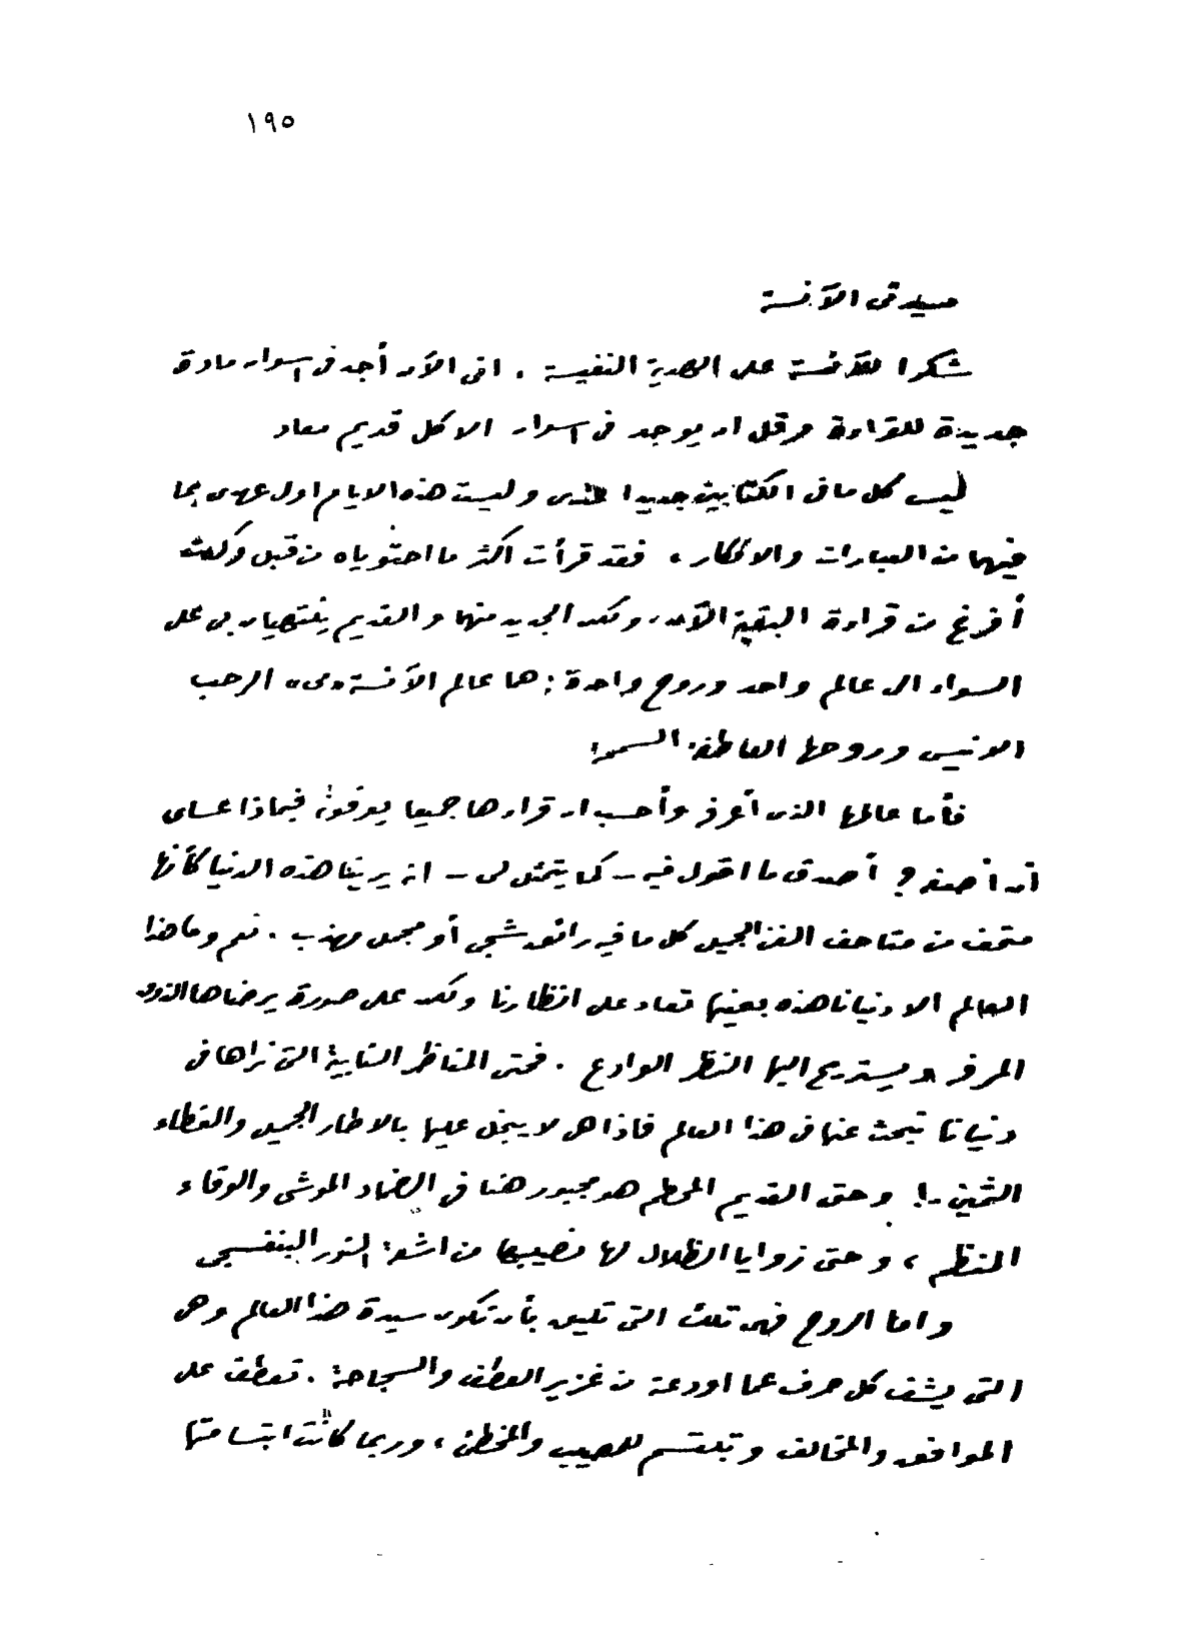 ١٩٥
سيدتى الآنسة
شكرا للآنسة على الهدية النفيسة . انى الآن أجد فى اسوان مادة
جديدة للقراءة وقل ان يوجد فى اسوان الا كل قديم معاد
ليس كل ما فى الكتابين جديدا عندى وليست هذه الايام اول عهدى بما
فيهما من العبارات والافكار ، فقد قرأت اكثر ما احتوياه من قبل وكدت
أفرغ من قراءة البقية الآن ، ولكن الجديد منهما والقديم ينتهيان بى على
السواء الى عالم واحد وروح واحدة : هما عالم الآنسة «مى» الرحب
الانيس وروحها العاطفة السمو
فأما عالمها الذى أعرفه وأحسب ان قراءها جميعا يعرفونه فبماذا عساى
أن أصفه ؟ أصدق ما اقول فيه – كما يتمثل لى – انه يرينا هذه الدنيا كأنها
متحف من متاحف الفن الجميل كل ما فيه رائق شجى أو مجمل مهذب . نعم وما هذا
العالم الا دنيانا هذه بعينها تعاد على انظارنا ولكن على صورة يرضاها الذوق
المرفه ويستريح اليها النظر الوادع . فحتى المناظر النابية التى نراها فى
دنيانا تبحث عنها فى هذا العالم فاذا هى لا يبخل عليها بالاطار الجميل والغطاء
الثمين ! وحتى القديم المحطم هو مجبور هنا فى الضماد الموشى والوقاء
المنظم ، وحتى زوايا الظلال لها نصيبها من اشعة النور البنفسجى
واما الروح فهى تلك التى تليق بأن تكون سيدة هذا العالم وهى
التى يشف كل حرف عما اودعته من غزير العطف والسجاحة . تعطف على
الموافق والمخالف وتبتسم للمصيب والمخطئ ، وربما كانت ابتسامتها